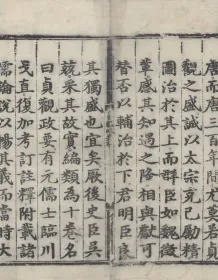 唐而唐三百年間尤莫若貞
觀之盛誠以太宗克己勵精
圖治於其上而群臣如魏徵
輩感其知遇之隆相與獻可
替否以輔治於下君明臣良
其獨盛也宜矣厥後史臣吳
兢采其故實編類爲十卷名
曰貞觀政要有元儒士臨川
戈直復加考訂註釋附載諸
儒論說以暢其義而當時大